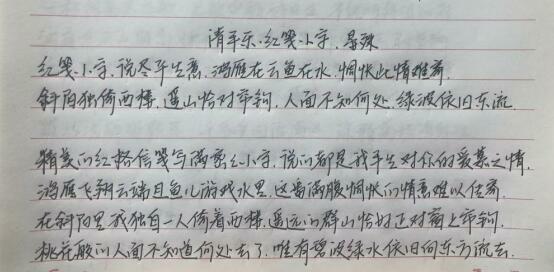 清平乐·红笺小字.晏殊
红笺小字.说尽平生意.鸿雁在云鱼在水.惆怅此情难寄.
斜阳独倚西楼.遥山恰对帘钩.人面不知何处.绿波依旧东流.
精美的红格信笺写满密密小字,说的都是我平生对你的爱慕之情.
鸿雁飞翔云端且鱼儿游戏水里,这番满腹惆怅的情意难以传寄.
在斜阳里我独自一人倚着西楼,遥远的群山恰好正对窗上帘钩.
桃花般的人面不知道何处去了.唯有碧波绿水依旧向东方流去.